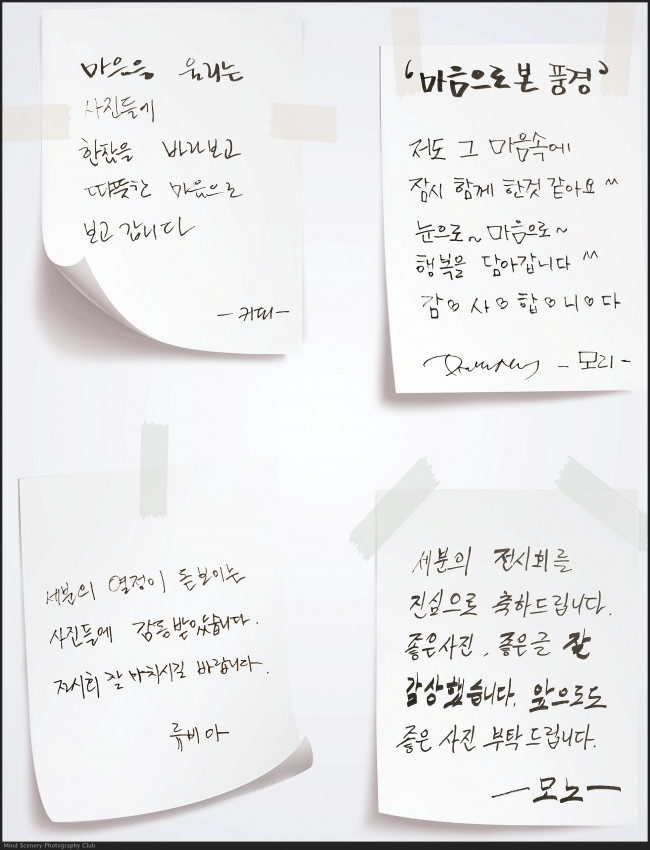 마음을 울리는
사진들에
한참을 바라보고
따뜻한 마음으로
보고 갑니다
- 커피 -
'마음으로 본 풍경'
저도 그 마음속에
잠시 함께 한것 같아요 ^^
눈으로~ 마음으로~
행복을 담아갑니다 ^^
감♡사♡합♡니♡다
- 모리 -
세분의 열정이 돋보이는
사진들에 감동받았습니다.
전시회 잘 마치시길 바랍니다.
류비아
세분의 전시회를
진심으로 축하드립니다.
좋은사진, 좋은글 잘
감상했습니다. 앞으로도
좋은 사진 부탁드립니다.
- 모노 -
Mind Scenery Photography Club